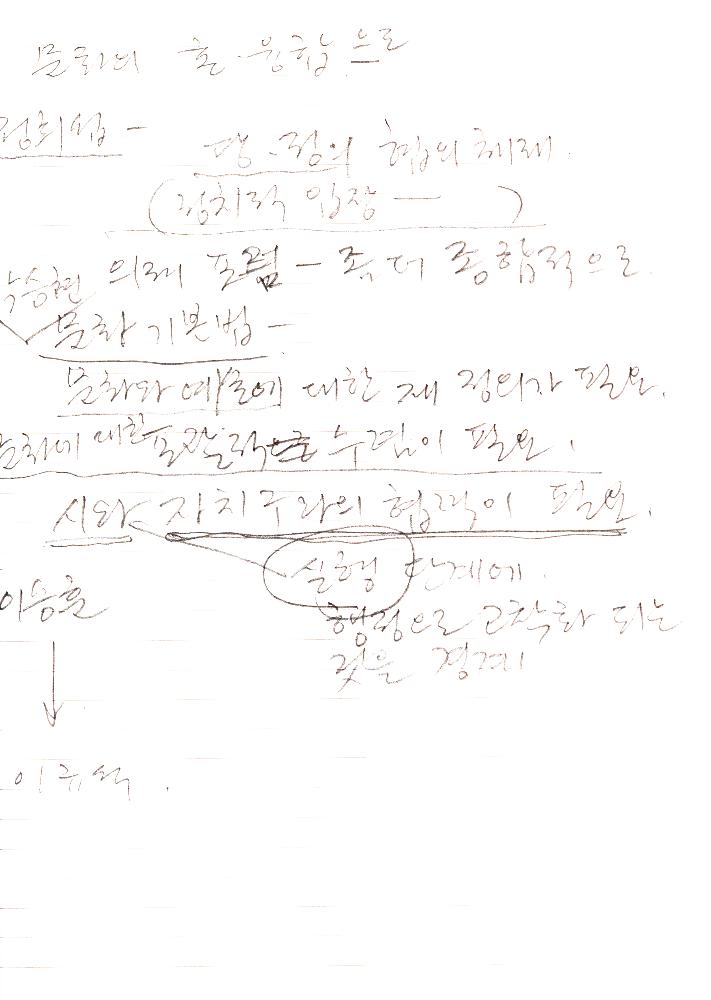 문화의 혼·융합으로
정희섭 -
당·정의 협의 체계.
(정치적 입장 — )
의제 포럼 - 좀 더 종합적으로
문화기본법 -
문화와 예술에 대한 재 정의가 필요.
문화에 대한 포괄적 누림이 필요.
시와 자치구와의 협력이 필요.
실행 단계에.
행정으로 고착화 되는
것을 경계
이승훈
이규석.